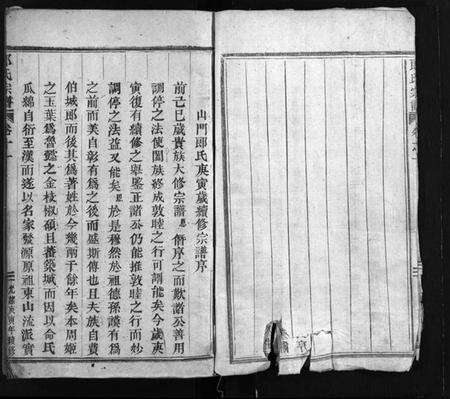 郎氏宗譜
山門郎氏庚寅歲續修宗譜序
前己巳歲貴族大修宗譜思僭序之而歎諸公善用
調停之法使闔族終成敦睦之行可謂能矣今歲庚
寅復有續修之舉鑒正諸公仍能推敦睦之行而妙
調停之法益又能矣思於是穆然於祖德孫謨有為
之前而美自彰有為之後而盛斯傳也且夫族自費
伯城郎而後其為著姓於今幾兩千餘年矣本周姬
之玉葉為魯懿之金枝椒碩且蕃築城而因以命氏
瓜綿自衍至漢而遂以名家發源原祖東山流派實
郎氏宗譜 卷
光緒庚寅年續修